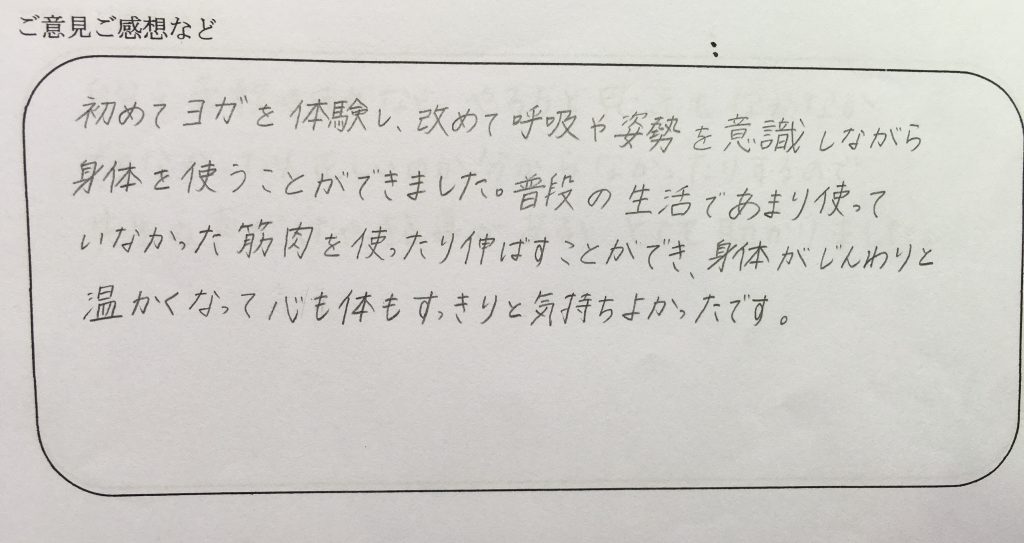 ご意見ご感想など
初めてヨガを体験し、改めて呼吸や姿勢を意識しながら
身体を使うことができました。普段の生活であまり使って
いなかった筋肉を使ったり伸ばすことができ、身体がじんわりと
温かくなって心も体もすっきりと気持ちよかったです。